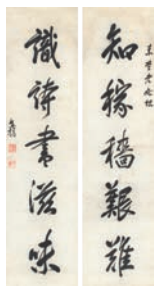 知稼穡艱難
識詩書滋味